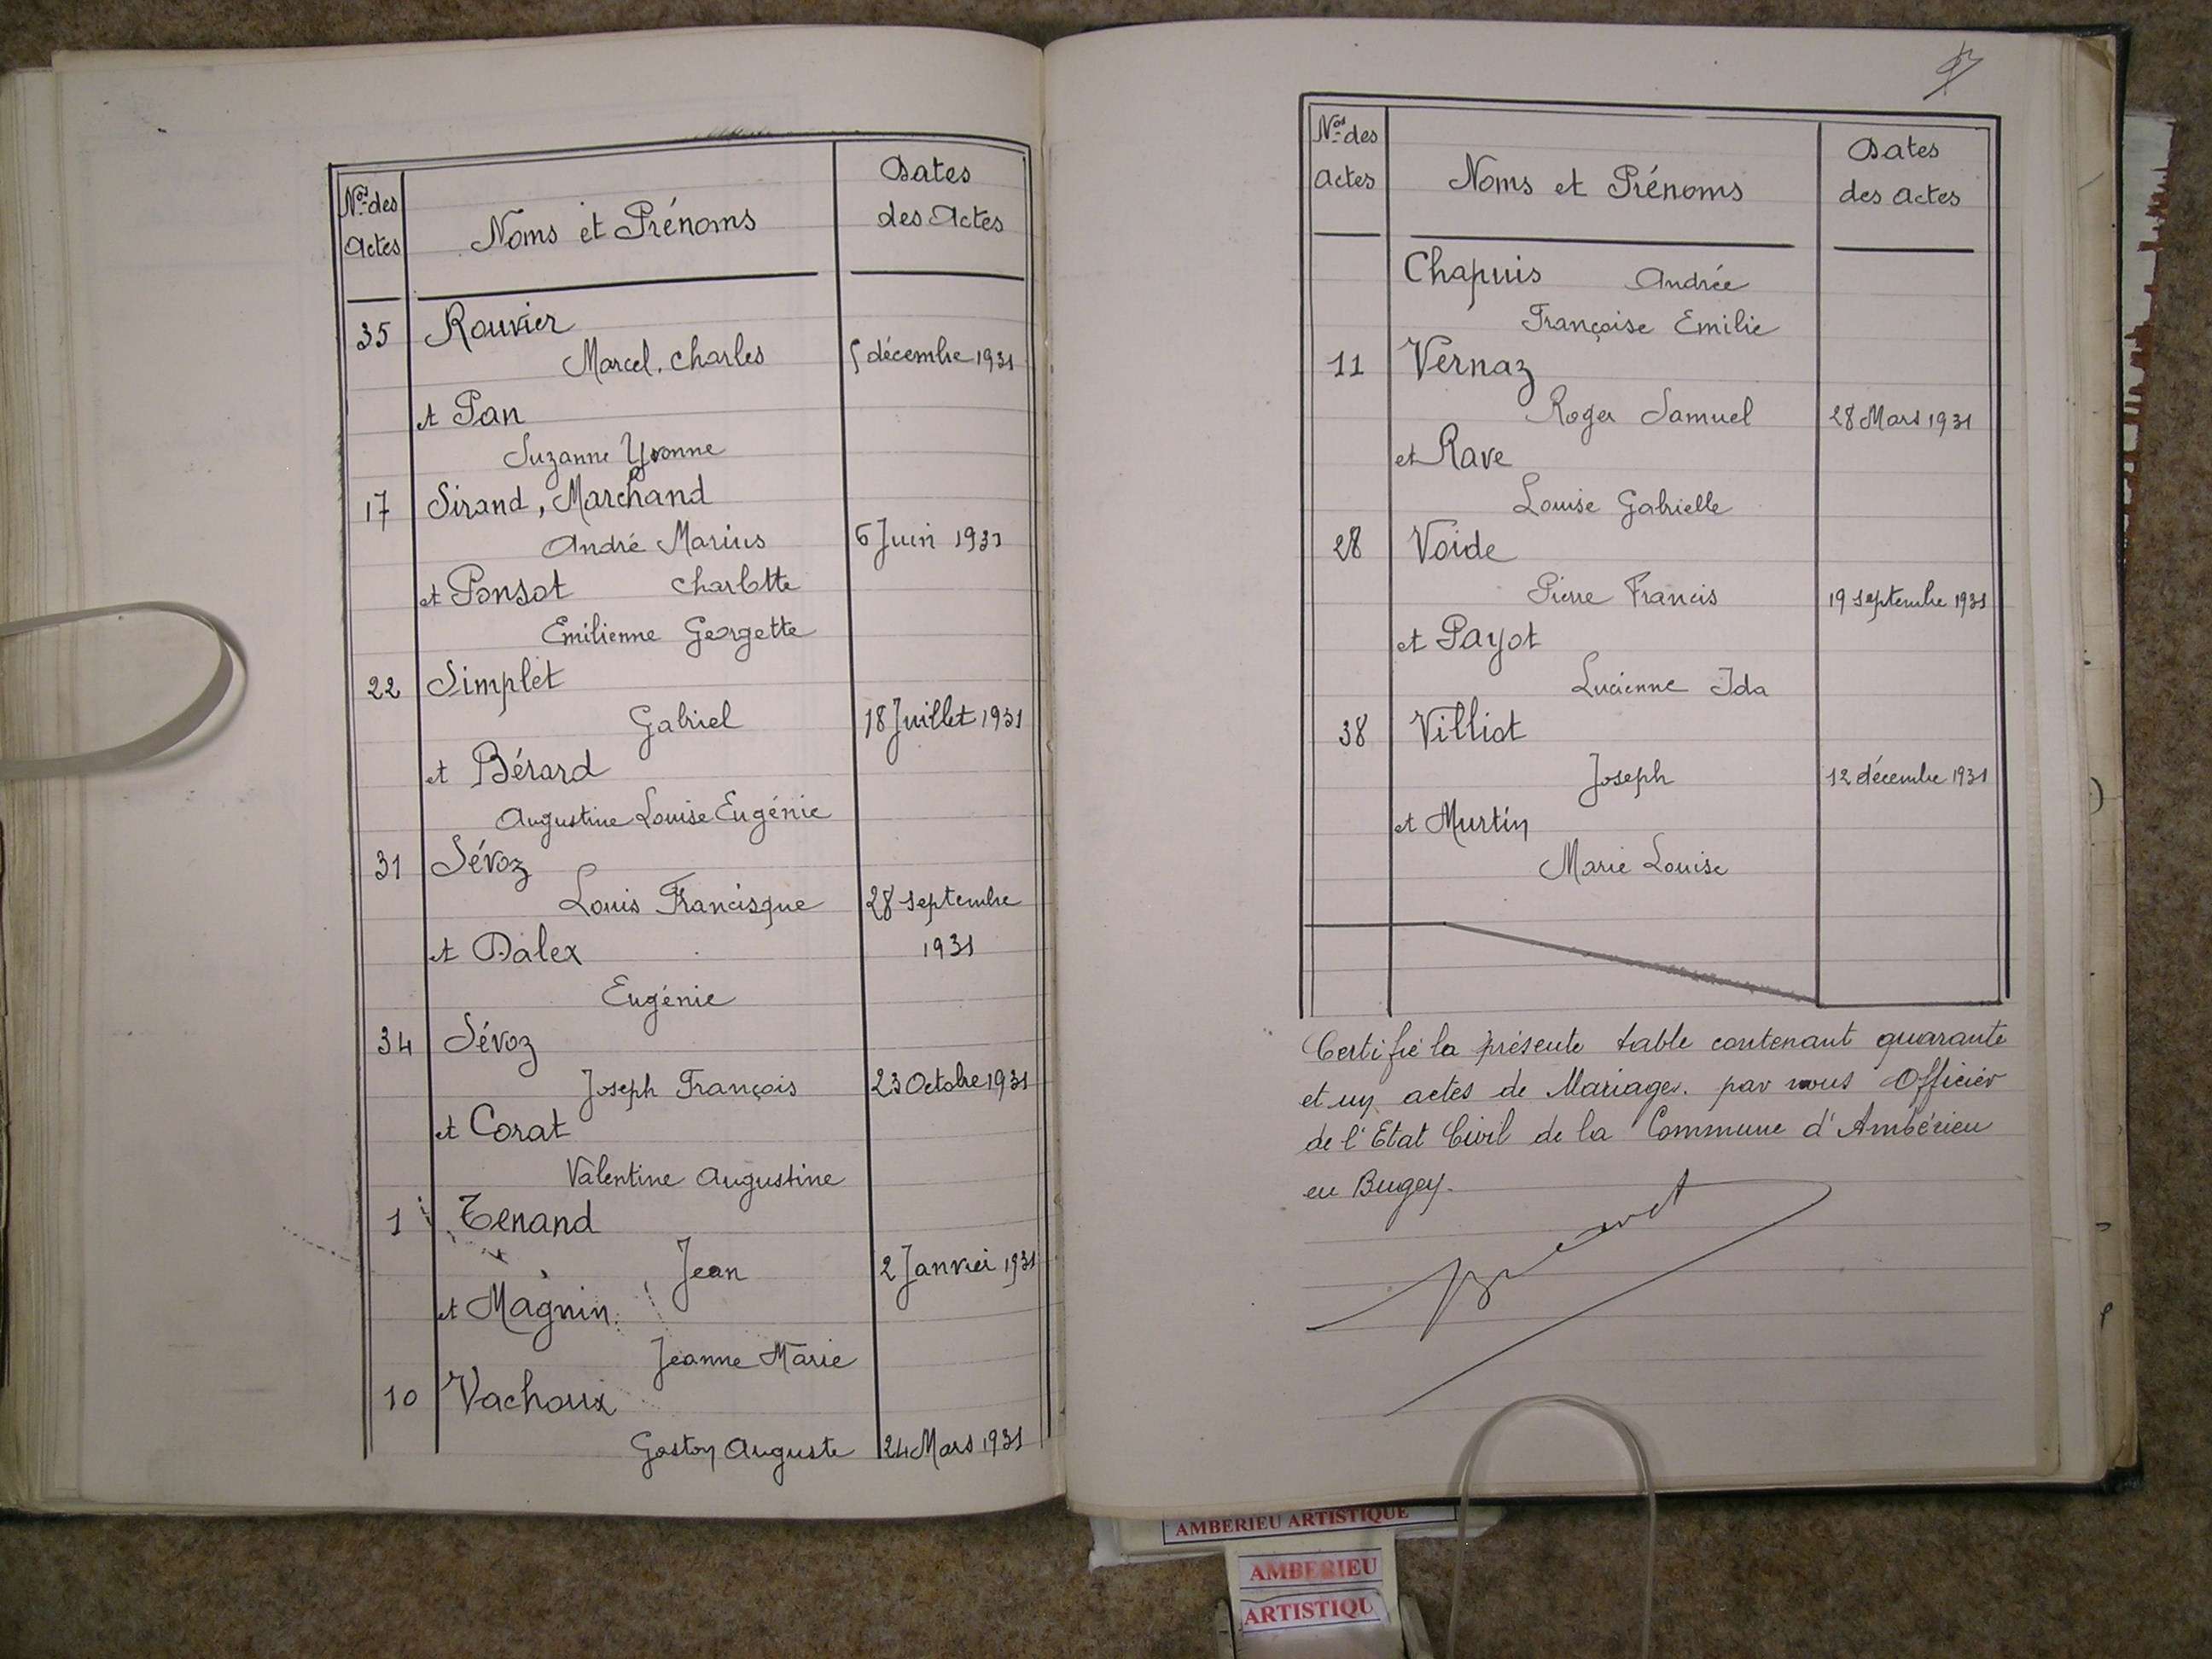 Nos des
Actes
Noms et Prénoms
Dates
des Actes
35 Rouvier
Marcel. Charles 5 décembre 1931
et Pan
Suzanne Yvonne
17 Sirand, Marchand
André Marius 6 Juin 1931
et Ponsot Charlotte
Emilienne Georgette
22 Simplet
Gabriel 18 Juillet 1931
et Bérard
Augustine Louise Eugénie
31 Sévoz
Louis Francisque 28 septembre
et Dalex 1931
Eugénie
34 Sévoz
Joseph François 23 Octobre 1931
et Corat
Valentine Augustine
1 Tenand
Jean 2 Janvier 1931
et Magnin
Jeanne Marie
10 Vachoux
Gaston Auguste 24 Mars 1931
Nos des
Actes
Noms et Prénoms
Dates
des Actes
Chapuis Andrée
Françoise Emilie
11 Vernaz
Roger Samuel 28 Mars 1931
et Rave
Louise Gabrielle
28 Voide
Pierre Francis 19 septembre 1931
et Payot
Lucienne Ida
38 Villiot
Joseph 12 décembre 1931
et Murtin
Marie Louise
Certifié la présente table contenant quarante
et un actes de Mariages. par nous Officier
de l'Etat Civil de la Commune d'Ambérieu
en Bugey.
AMBERIEU ARTISTIQUE
AMBERIEU
ARTISTIQU